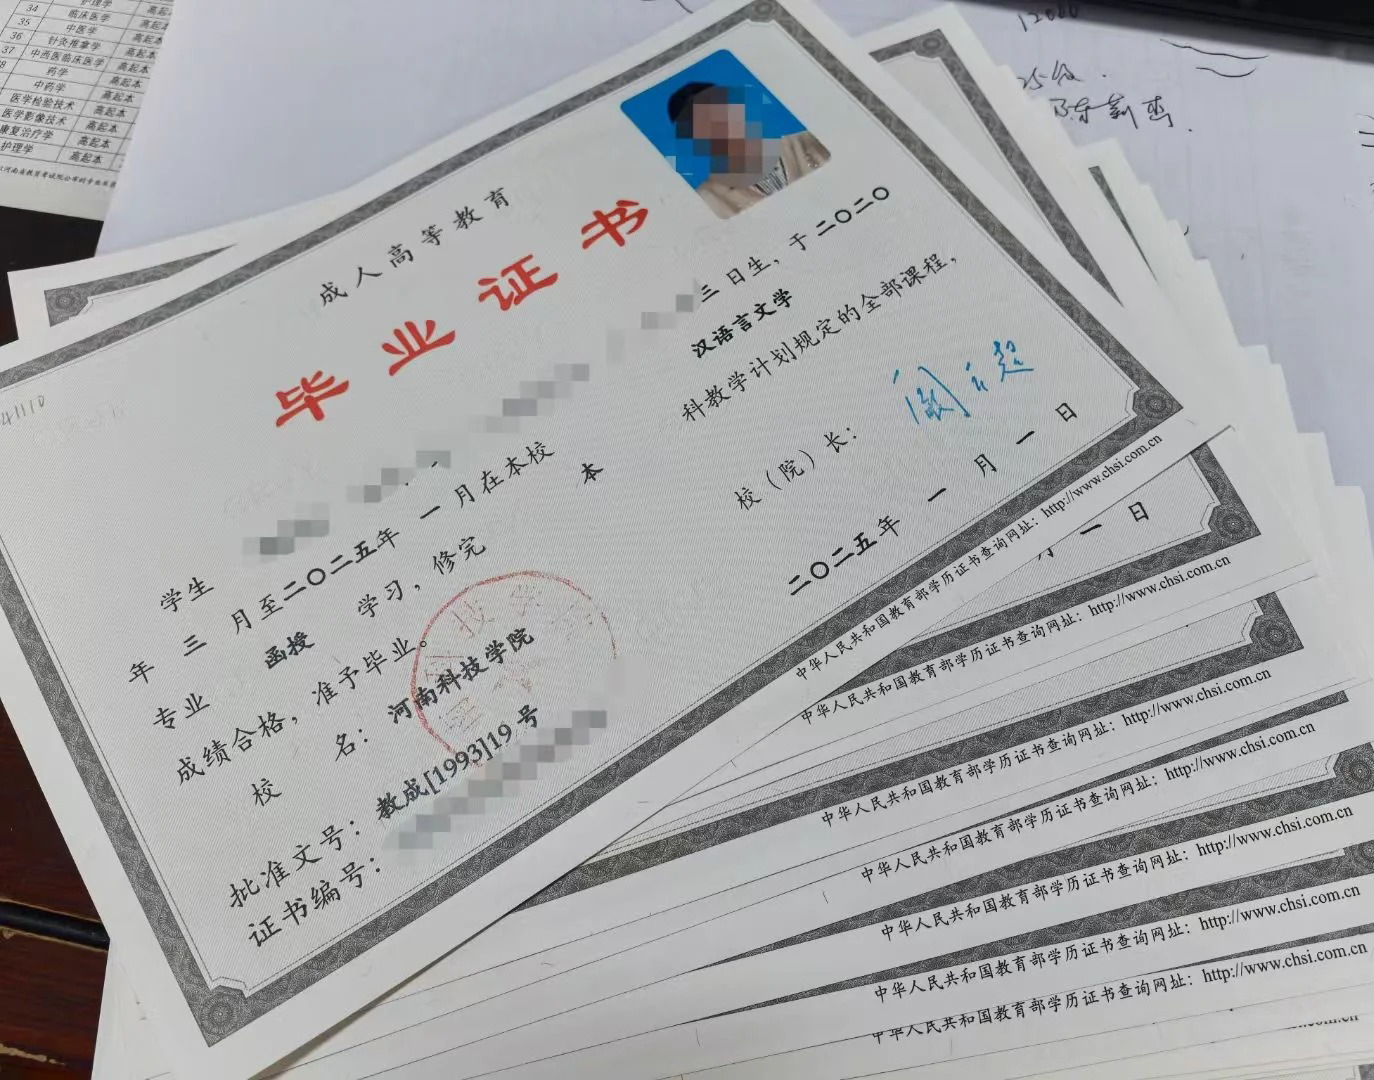 34 护理学 高起
35 临床医学 高起本
36 中医学 高起本
37 针灸推拿学 高起本
中西医临床医学 高起本
药学 高起本
中药学 高起本
医学检验技术 高起本
医学影像技术 高起本
康复治疗学 高起本
护理学 高起本
河南省教育考试院公布的专业
12000
成人高等教育
毕业证书
学生 三日生，于二〇二〇
年 三 月至二〇二五年 一 月在本校 汉语言文学
专业 函授 学习，修完 本 科教学计划规定的全部课程，
成绩合格，准予毕业。
校 名： 河南科技学院 校（院）长：
批准文号： 教成[1993]19 号 二〇二五年 一 月 一 日
证书编号：
中华人民共和国教育部学历证书查询网址：http://www.chsi.com.cn
一 日
中华人民共和国教育部学历证书查询网址：http://www.chsi.com.cn
中华人民共和国教育部学历证书查询网址：http://www.chsi.com.cn
中华人民共和国教育部学历证书查询网址：http://www.chsi.com.cn
中华人民共和国教育部学历证书查询网址：http://www.chsi.com.cn
中华人民共和国教育部学历证书查询网址：http://www.chsi.com.cn
中华人民共和国教育部学历证书查询网址：http://www.chsi.com.cn